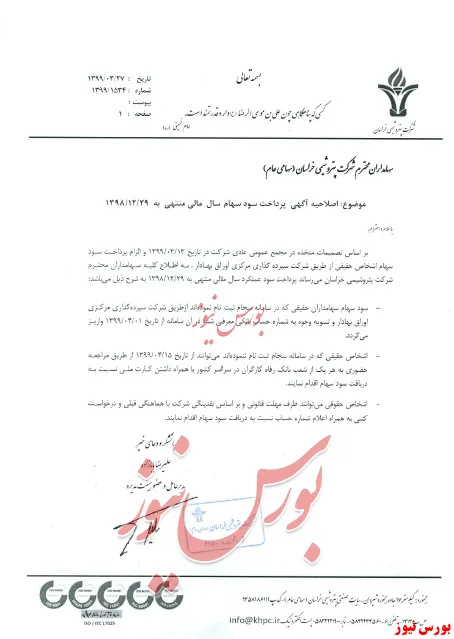 بسمه تعالی
تاریخ : ۱۳۹۹/۰۳/۲۷
شماره : ۱۳۹۹/۱۵۳۴
پیوست :
صفحه : ۱
شرکت پتروشیمی خراسان
کسی که پناهگاهی چون علی بن موسی الرضا (ع) دارد قدرتمند است.
امام خمینی (ره)
سهامداران محترم شرکت پتروشیمی خراسان (سهامی عام)
موضوع: اصلاحیه آگهی پرداخت سود سهام سال مالی منتهی به ۱۳۹۸/۱۲/۲۹
با سلام و احترام،
بر اساس تصمیمات متخذه در مجمع عمومی عادی شرکت در تاریخ ۱۳۹۹/۰۳/۱۳ و الزام پرداخت سود
سهام اشخاص حقیقی از طریق شرکت سپرده گذاری مرکزی اوراق بهادار ، به اطلاع کلیه سهامداران محترم
شرکت پتروشیمی خراسان می‌رساند پرداخت سود عملکرد سال مالی منتهی به ۱۳۹۸/۱۲/۲۹ به شرح ذیل می‌باشد:
- سود سهام سهامداران حقیقی که در سامانه سجام ثبت نام نموده‌اند ازطریق شرکت سپرده‌گذاری مرکزی
اوراق بهادار و تسویه وجوه به شماره حساب بانکی معرفی شده در آن سامانه از تاریخ ۱۳۹۹/۰۴/۰۱ واریز
می‌گردد.
- اشخاص حقیقی که در سامانه سجام ثبت نام ننموده‌اند می‌توانند از تاریخ ۱۳۹۹/۰۴/۱۵ از طریق مراجعه
حضوری به هر یک از شعب بانک رفاه کارگران در سراسر کشور با همراه داشتن کارت ملی نسبت به
دریافت سود سهام اقدام نمایند.
- اشخاص حقوقی می‌توانند ظرف مهلت قانونی و بر اساس نقدینگی شرکت با هماهنگی قبلی و درخواست
کتبی به همراه اعلام شماره حساب نسبت به دریافت سود سهام اقدام نمایند.
با تشکر و دعای خیر
علیرضا
مدیرعامل و عضو هیئت مدیره
بورس نیوز
بورس نیوز
ISO / IEC 17025
info@khpc.ir
بورس نیوز